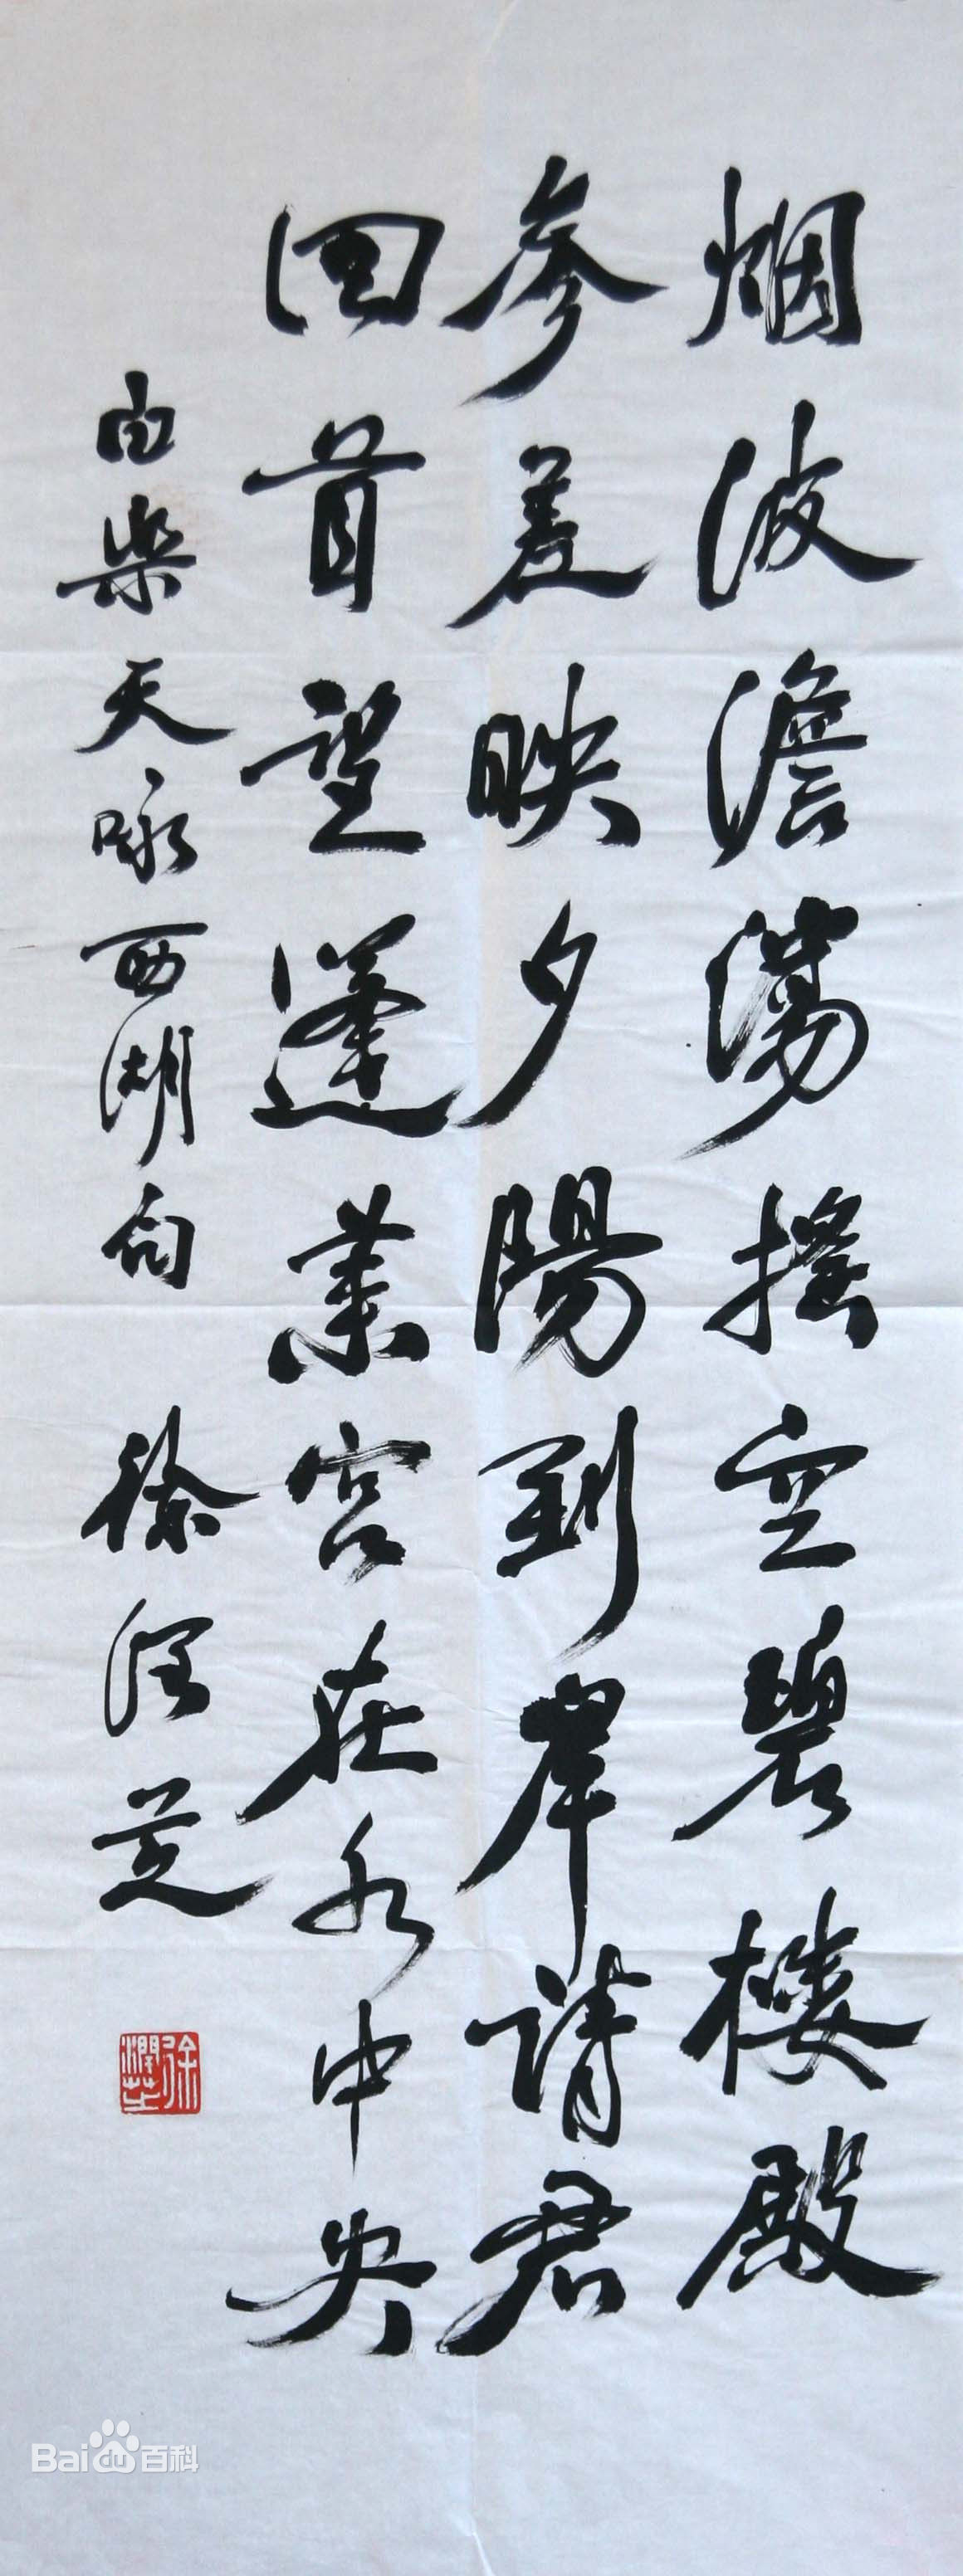 烟波澹荡摇空碧楼殿
参差映夕陽到岸请君
回首望蓬莱宫在水中央
白樂天咏西湖句
徐润芝
徐潤芝
Bai du 百科